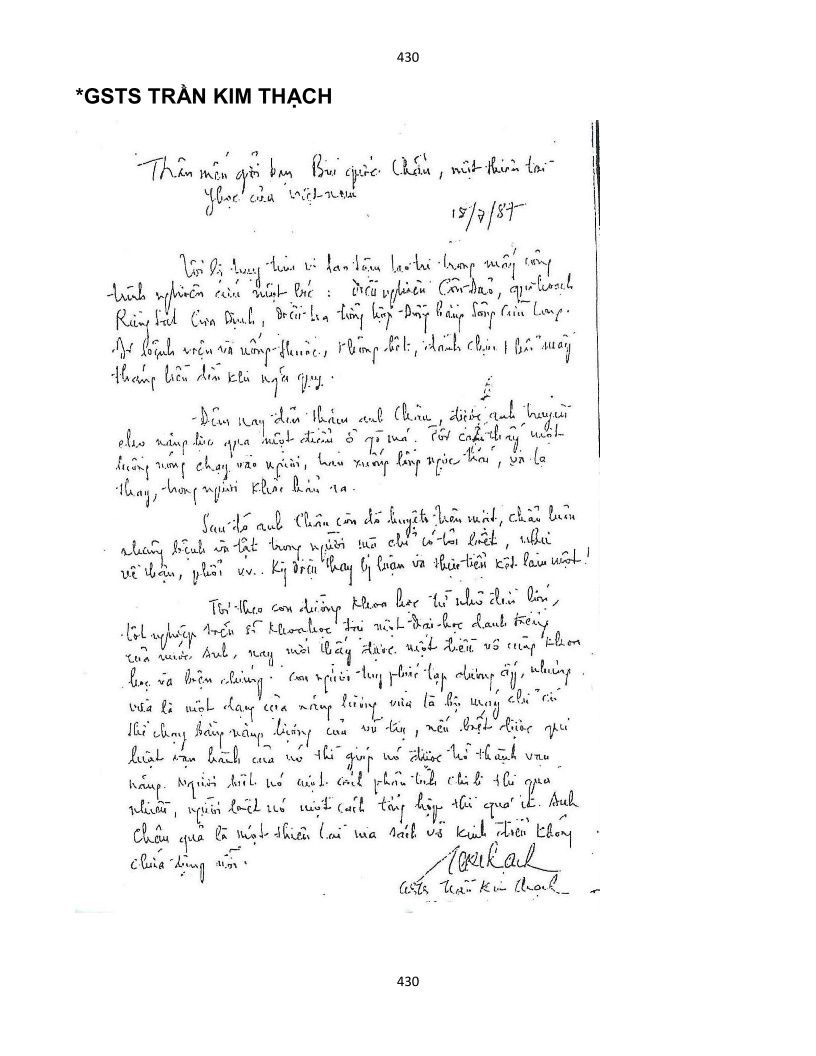 430
*GSTS TRẦN KIM THẠCH
Thân mến gởi bạn Bùi Quốc Châu, một thiên tài
y học của Việt Nam
18/7/87
Tôi bị suy tim vì lao tâm lao trí trong mấy công
trình nghiên cứu một lúc : Điều nghiên Côn Đảo, qui hoạch
Rừng Sát Cần Giờ, Điều tra tổng hợp Đồng bằng Sông Cửu Long.
bệnh viện và uống thuốc, không hết, đành chịu mấy
tháng liền đến khi ngã quỵ.
Đêm nay đến thăm anh Châu, được anh truyền
cho năng lực qua một điểm ở gò má. Tôi cảm thấy một
luồng nóng chạy vào người, lan xuống lồng ngực trái, và lạ
thay, trong người khỏe hẳn ra.
Sau đó anh Châu còn dò huyệt trên mặt, chẩn luôn
những bệnh và tật trong người mà chỉ có tôi biết, như
về thận, phổi vv.. Kỳ diệu thay lý luận và thực tiễn kết làm một!
Tôi theo con đường khoa học từ nhỏ đến lớn,
tốt nghiệp tiến sĩ khoa học tại một đại học danh tiếng
của nước Anh, nay mới thấy được một tiến vô cùng khoa
học và biện chứng. Con người tuy phức tạp dường ấy, nhưng
vừa là một dạng của năng lượng vừa là bộ máy chỉ có
thể chạy bằng năng lượng của vũ trụ, nếu biết được qui
luật vận hành của nó thì giúp nó được trở thành vạn
năng. Người biết nó một cách phân tích chi li thì quá
nhiều, người biết nó một cách tổng hợp thì quá ít. Anh
Châu quả là một thiên tài mà sách vở kinh điển không
chứa đựng nổi.
GSTS Trần Kim Thạch
430